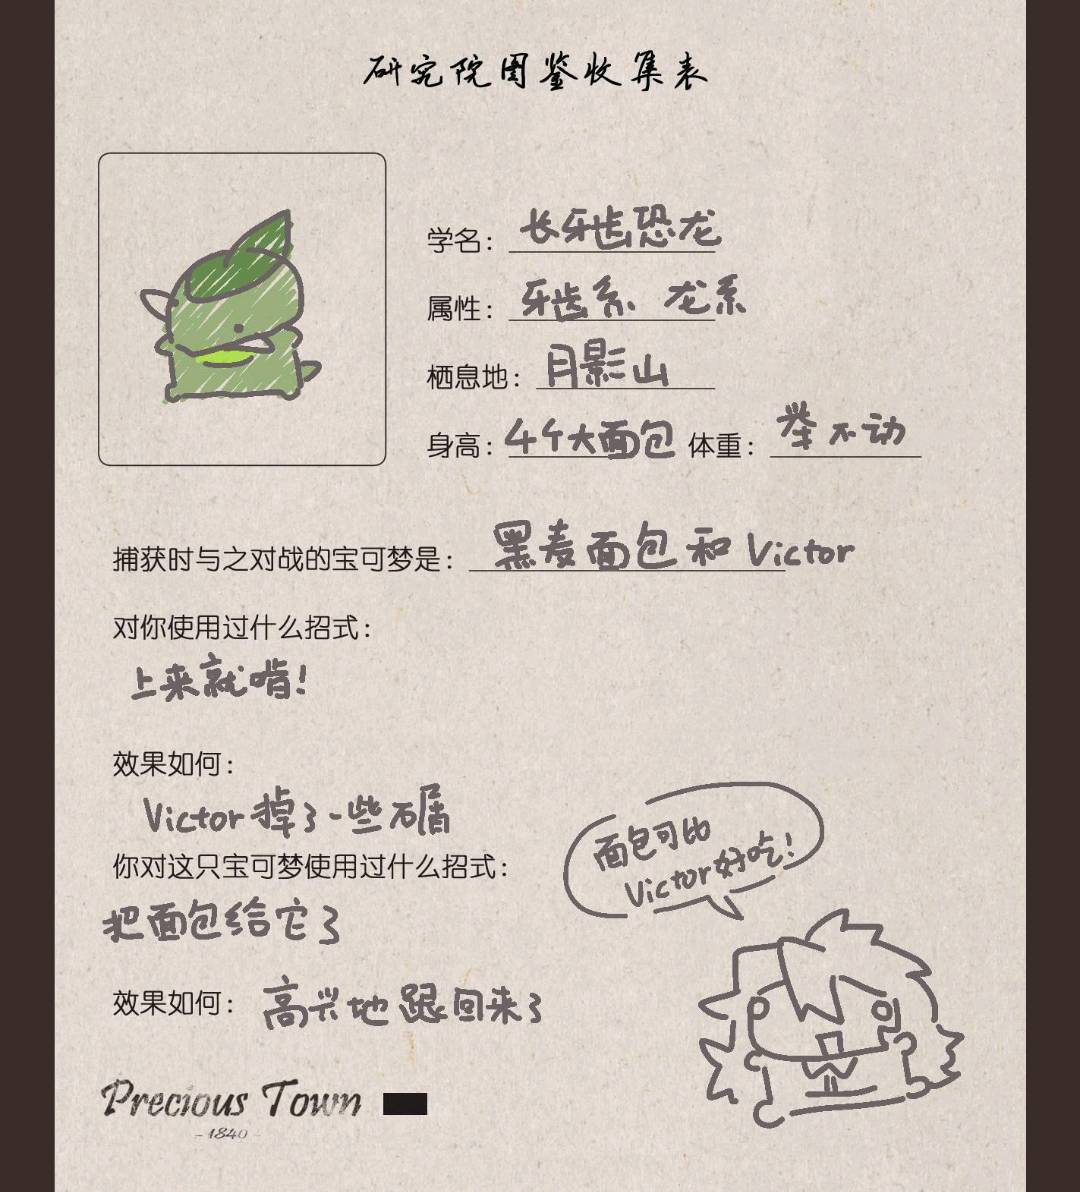 研究院图鉴收集表
学名：长牙齿恐龙
属性：牙齿系、龙系
栖息地：月影山
身高：4个大面包 体重：举不动
捕获时与之对战的宝可梦是：黑麦面包和Victor
对你使用过什么招式：
上来就啃！
效果如何：
Victor掉了一些石屑
你对这只宝可梦使用过什么招式：
把面包给它了
效果如何：高兴地跟回来了
面包可比
Victor好吃！
Precious Town
-1840-